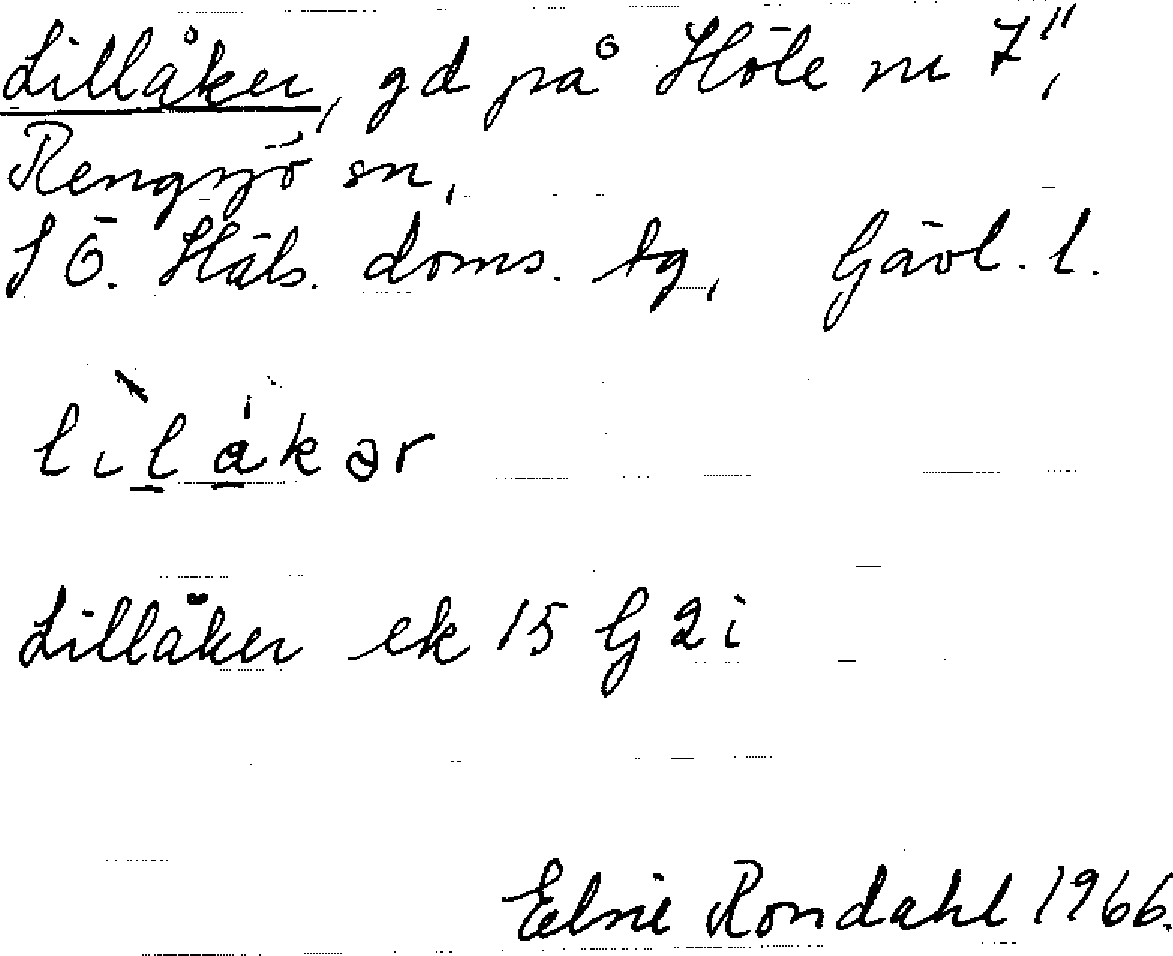 Lillåker, gd på Höle nr 7",
Rengsjö sn,
SÖ. Häls. doms. tg, Gävl. l.
lìlákər
Lillåker ek 15 G 2 i
Elsie Rondahl 1966.